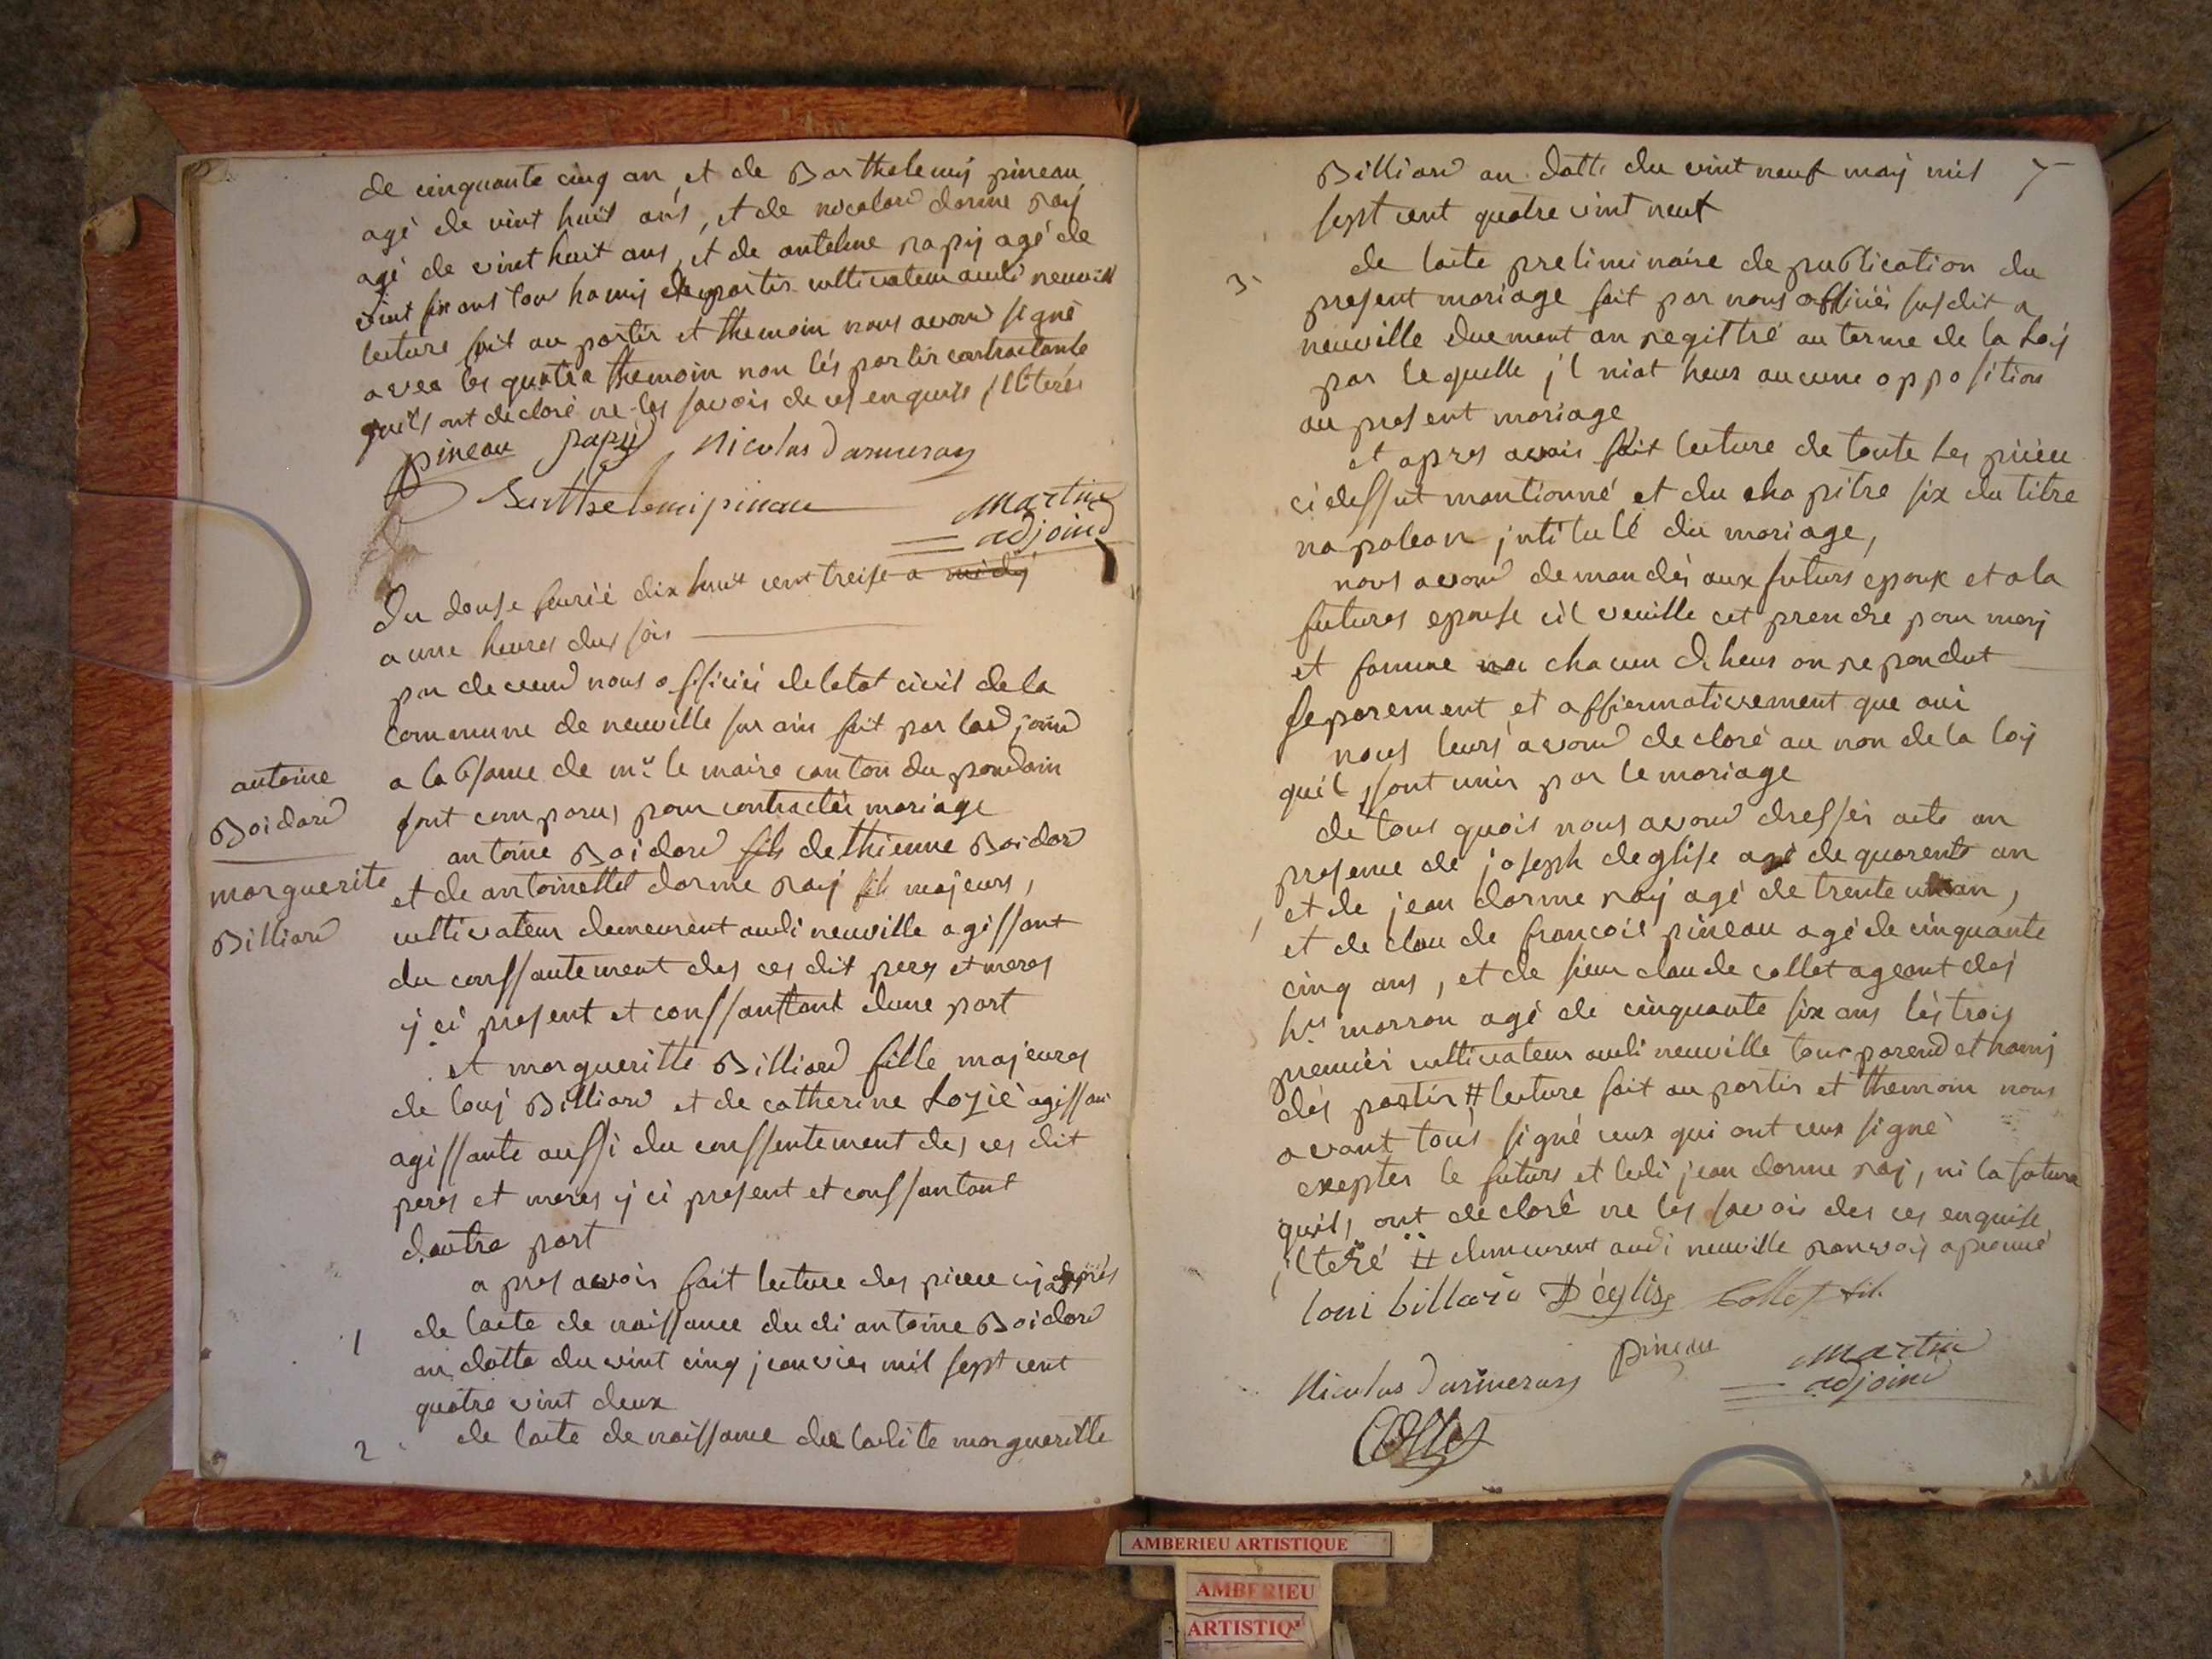 de cinquante cinq an, et de Barthelemij pineau
agé de vint huit ans, et de nicolard dorme raij
agé de vint huit ans, et de antelme papij agé de
vint six ans tous hamij de partis cultivateur audi neuville
lecture fait au partis et themoin nous avond signé
avec les quatre themoin non lés partir contractante
quils ont decloré ne les savoir de cel enquis illiterés
pineau papij Nicolas Darmeray
Barthelemi pineau
martin
adjoind
Du douse fevrié dix huit cent treise a midÿ
a une heures dus soir
par devend nous officiér deletat civil de la
commune de neuville sur ain fait par ladjoind
a la bsance de mr. le maire canton du pondain
sont comparus pour contractér mariage
antoine Boidard fils dethienne Boidard
et de antoinettel dorme raij fils majeurs,
cultivateur demeurent audi neuville agissant
du conssantement des ces dit peres et meres
ij ci present et conssanttant dune part
et margueritte Billiard fille majeures
de louij Billiard et de catherine Loziè agissan
agissante aussi du conssentement des ces dit
peres et meres ij ci present et conssantant
dautre part
antoine
Boidard
marguerite
Billiard
a pres avoir fait lecture des piece cij après
1 de lacte de naissance dudi antoine Boidard
an datte du vint cinq jeanvier mil sept cent
quatre vint deux
2 de lacte de naissance de ladite margueritte
7
Billiard an datte du vint neuf maij mil
sept cent quatre vint neuf
3 de lacte preliminaire de publication du
present mariage fait par nous officiér susdit a
neuville duement an regittré au terme de la Loij
par lequelle jl niat heus aucune opposition
au present mariage
et apres avoir fait lecture de toute les piéce
ci dessut mantionné et du chapitre six du titre
napoleon jntitulé du mariage,
nous avond demandés aux futurs epoux et a la
futures epouse cil veuille cet prendre pour marij
et famme chacun dheus on repondut
separement et affiermativement que oui
nous leurs avond decloré au non de la loij
quil ssont unis par le mariage
de tous quois nous avond dressér acte an
presence de joseph deglise agé de quarente an
et de jean dorme raij agé de trente un an,
et de claude francois pineau agé de cinquante
cinq ans, et de sieur claude collet ageant des
hrs marron agé de cinquante six ans lés trois
premiér cultivateur audi neuville tous parend et hamij
dés partis # lecture fait au partis et themoin nous
avont tous signé ceux qui ont ceux signé
exeptes le futurs et ledi jean dorme raij, ni la future
quils ont decloré ne les savoir des ces enquise
jlteré # demeurent audi neuville ranvois aprouvé
loui billiard Déglise Collet fils
pineau
martin
adjoind
Nicolas Darmeray
Collet
AMBERIEU ARTISTIQUE
AMBERIEU
ARTISTIQU